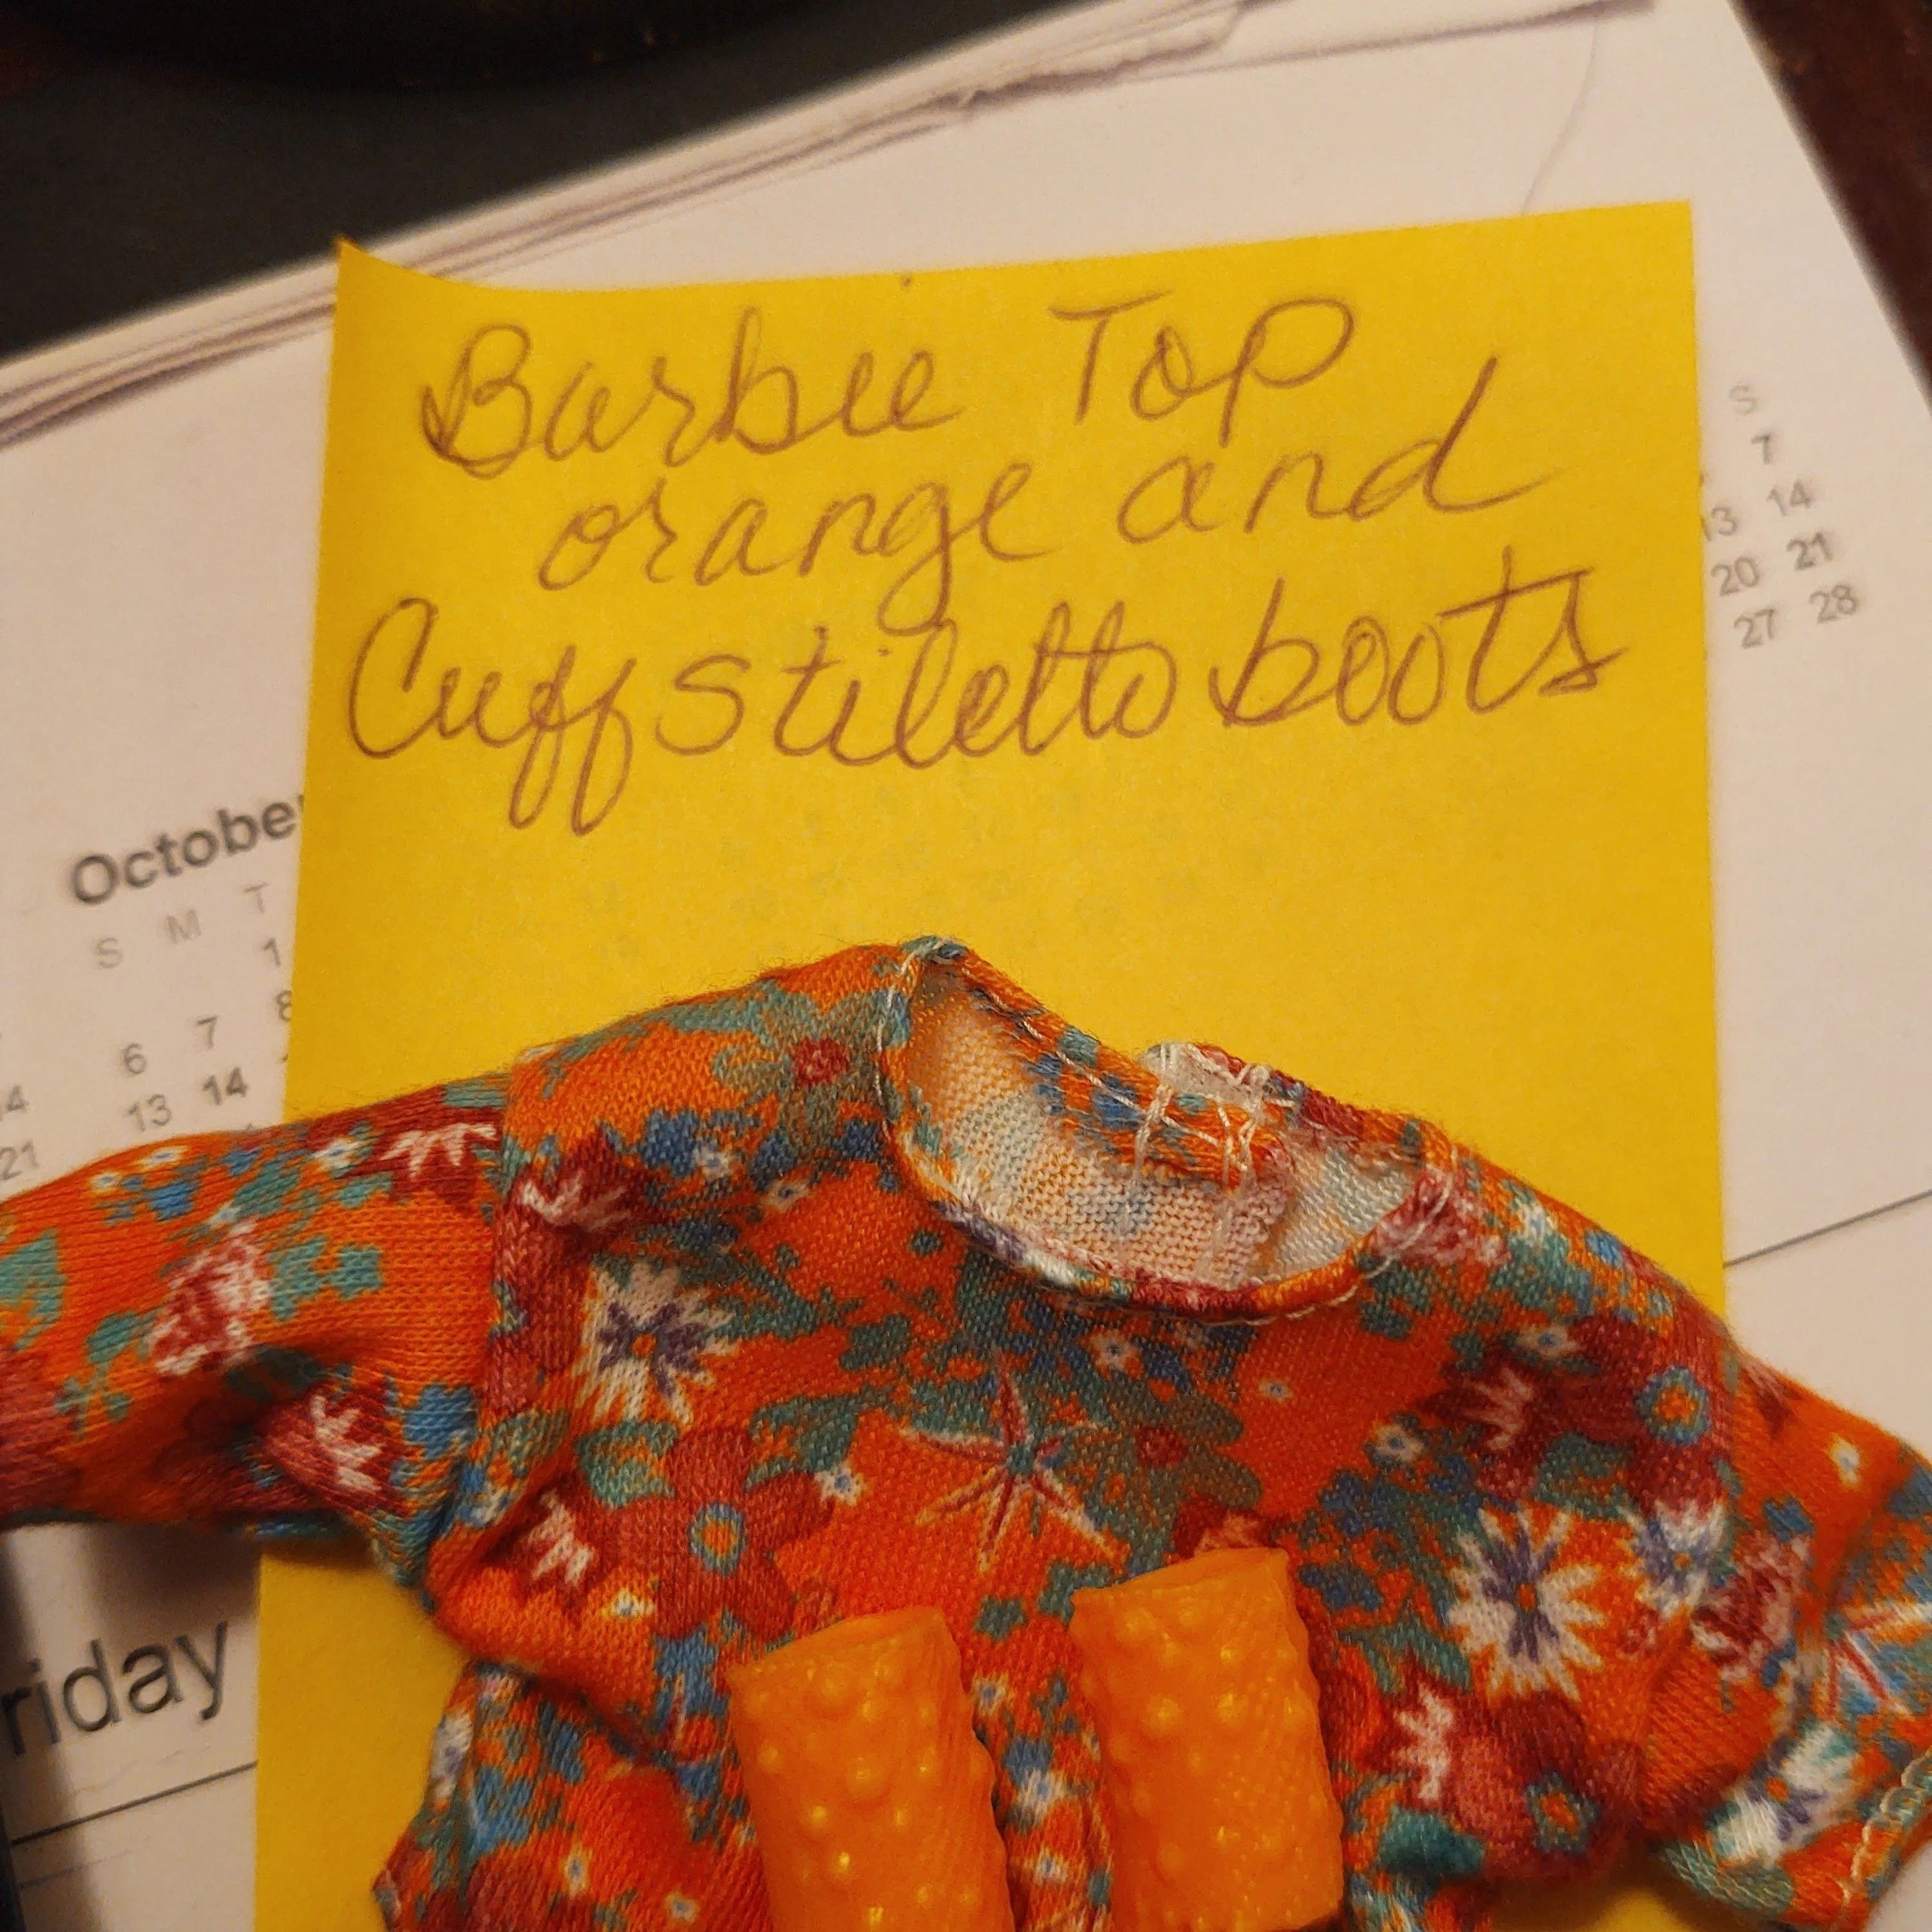 Barbie Top
orange and
Cuff stiletto boots
S
7
13 14
20 21
27 28
October
S M T
1
6 7 8
13 14
21
riday